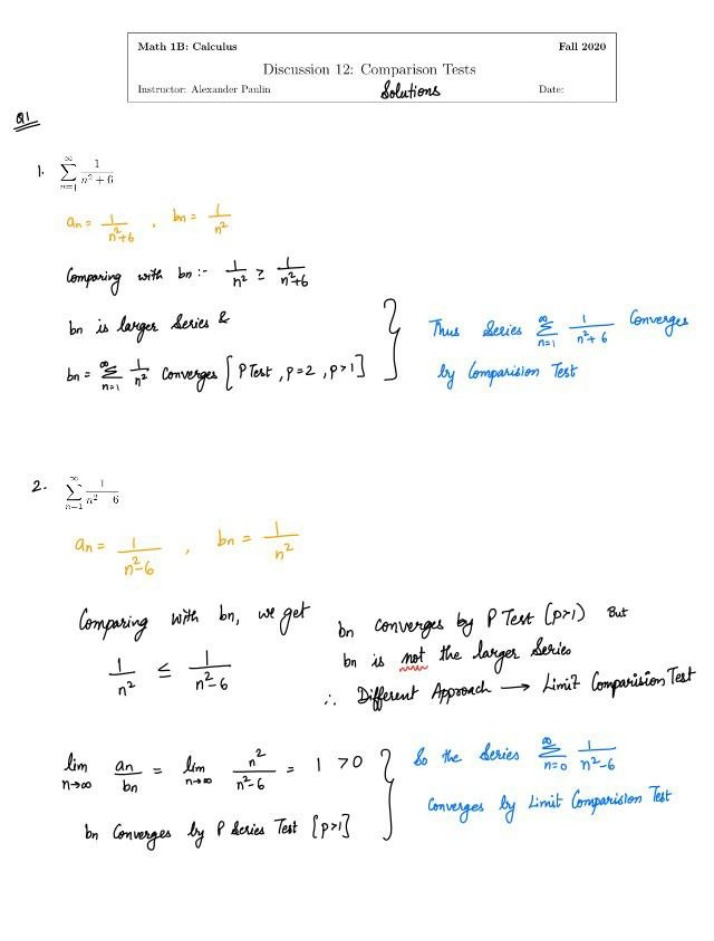 Math 1B: Calculus Fall 2020
Discussion 12: Comparison Tests
Instructor: Alexander Paulin Solutions Date:
Q1
1. ∑_{n=1}^{∞} 1/(n² + 6)
an = 1/(n²+6) , bn = 1/n²
Comparing with bn :- 1/n² ≥ 1/(n²+6)
bn is larger Series &
bn = ∑_{n=1}^{∞} 1/n² Converges [P Test, p=2, p>1]
Thus Series ∑_{n=1}^{∞} 1/(n²+6) Converges
by Comparision Test
2. ∑_{n=1}^{∞} 1/(n² 6)
an = 1/(n²-6) , bn = 1/n²
Comparing with bn, we get
1/n² ≤ 1/(n²-6)
bn converges by P Test (p>1) But
bn is not the larger Series
∴ Different Approach → Limit Comparision Test
lim_{n→∞} an/bn = lim_{n→∞} n²/(n²-6) = 1 >0
bn Converges by P Series Test [p>1]
So the Series ∑_{n=0}^{∞} 1/(n²-6)
Converges by Limit Comparision Test